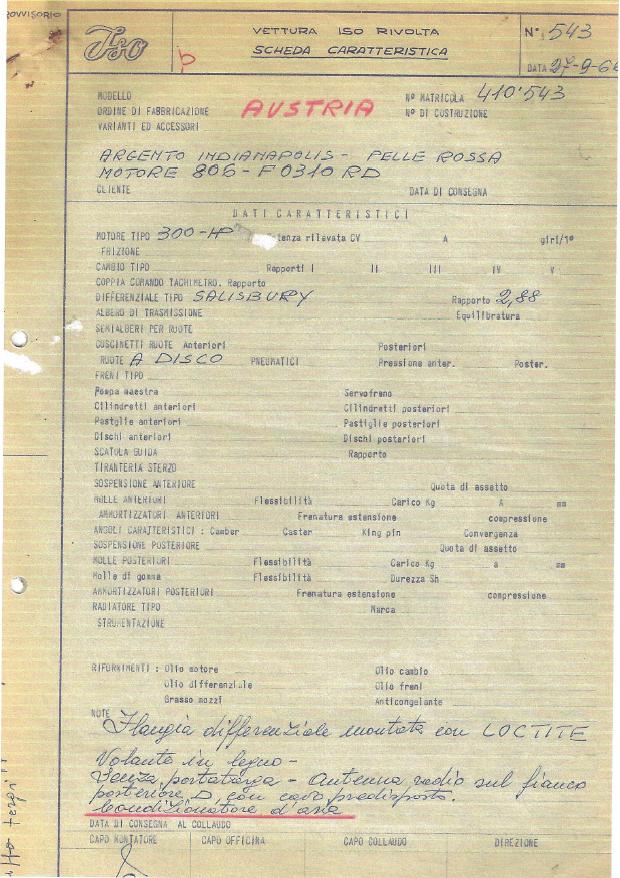 ROVVISORIO
Iso
p
VETTURA ISO RIVOLTA
SCHEDA CARATTERISTICA
N° 543
DATA 27-9-66
MODELLO
N° MATRICOLA 410'543
ORDINE DI FABBRICAZIONE
AUSTRIA
N° DI COSTRUZIONE
VARIANTI ED ACCESSORI
ARGENTO INDIANAPOLIS - PELLE ROSSA
MOTORE 806-F0310 RD
CLIENTE DATA DI CONSEGNA
DATI CARATTERISTICI
MOTORE TIPO 300-HP tenza rilevata CV A giri/1°
FRIZIONE
CAMBIO TIPO Rapporti I II III IV V
COPPIA COMANDO TACHIMETRO. Rapporto
DIFFERENZIALE TIPO SALISBURY Rapporto 2,88
ALBERO DI TRASMISSIONE Equilibratura
SEMIALBERI PER RUOTE
CUSCINETTI RUOTE Anteriori Posteriori
RUOTE A DISCO PNEUMATICI Pressione anter. Poster.
FRENI TIPO
Pompa maestra Servofreno
Cilindretti anteriori Cilindretti posteriori
Pastiglie anteriori Pastiglie posteriori
Dischi anteriori Dischi posteriori
SCATOLA GUIDA Rapporto
TIRANTERIA STERZO
SOSPENSIONE ANTERIORE Quota di assetto
MOLLE ANTERIORI Flessibilità Carico Kg A mm
AMMORTIZZATORI ANTERIORI Frenatura estensione compressione
ANGOLI CARATTERISTICI : Camber Caster King pin Convergenza
SOSPENSIONE POSTERIORE Quota di assetto
MOLLE POSTERIORI Flessibilità Carico Kg a mm
Molle di gomma Flessibilità Durezza Sh
AMMORTIZZATORI POSTERIORI Frenatura estensione compressione
RADIATORE TIPO Marca
STRUMENTAZIONE
RIFORNIMENTI : Olio motore Olio cambio
Olio differenziale Olio freni
Grasso mozzi Anticongelante
NOTE Flangia differenziale montata con LOCTITE
Volante in legno -
Senza portatarga - Antenna radio sul fianco
posteriore D, con cavo predisposto.
Condizionatore d'aria
DATA DI CONSEGNA AL COLLAUDO
CAPO MONTATORE CAPO OFFICINA CAPO COLLAUDO DIREZIONE